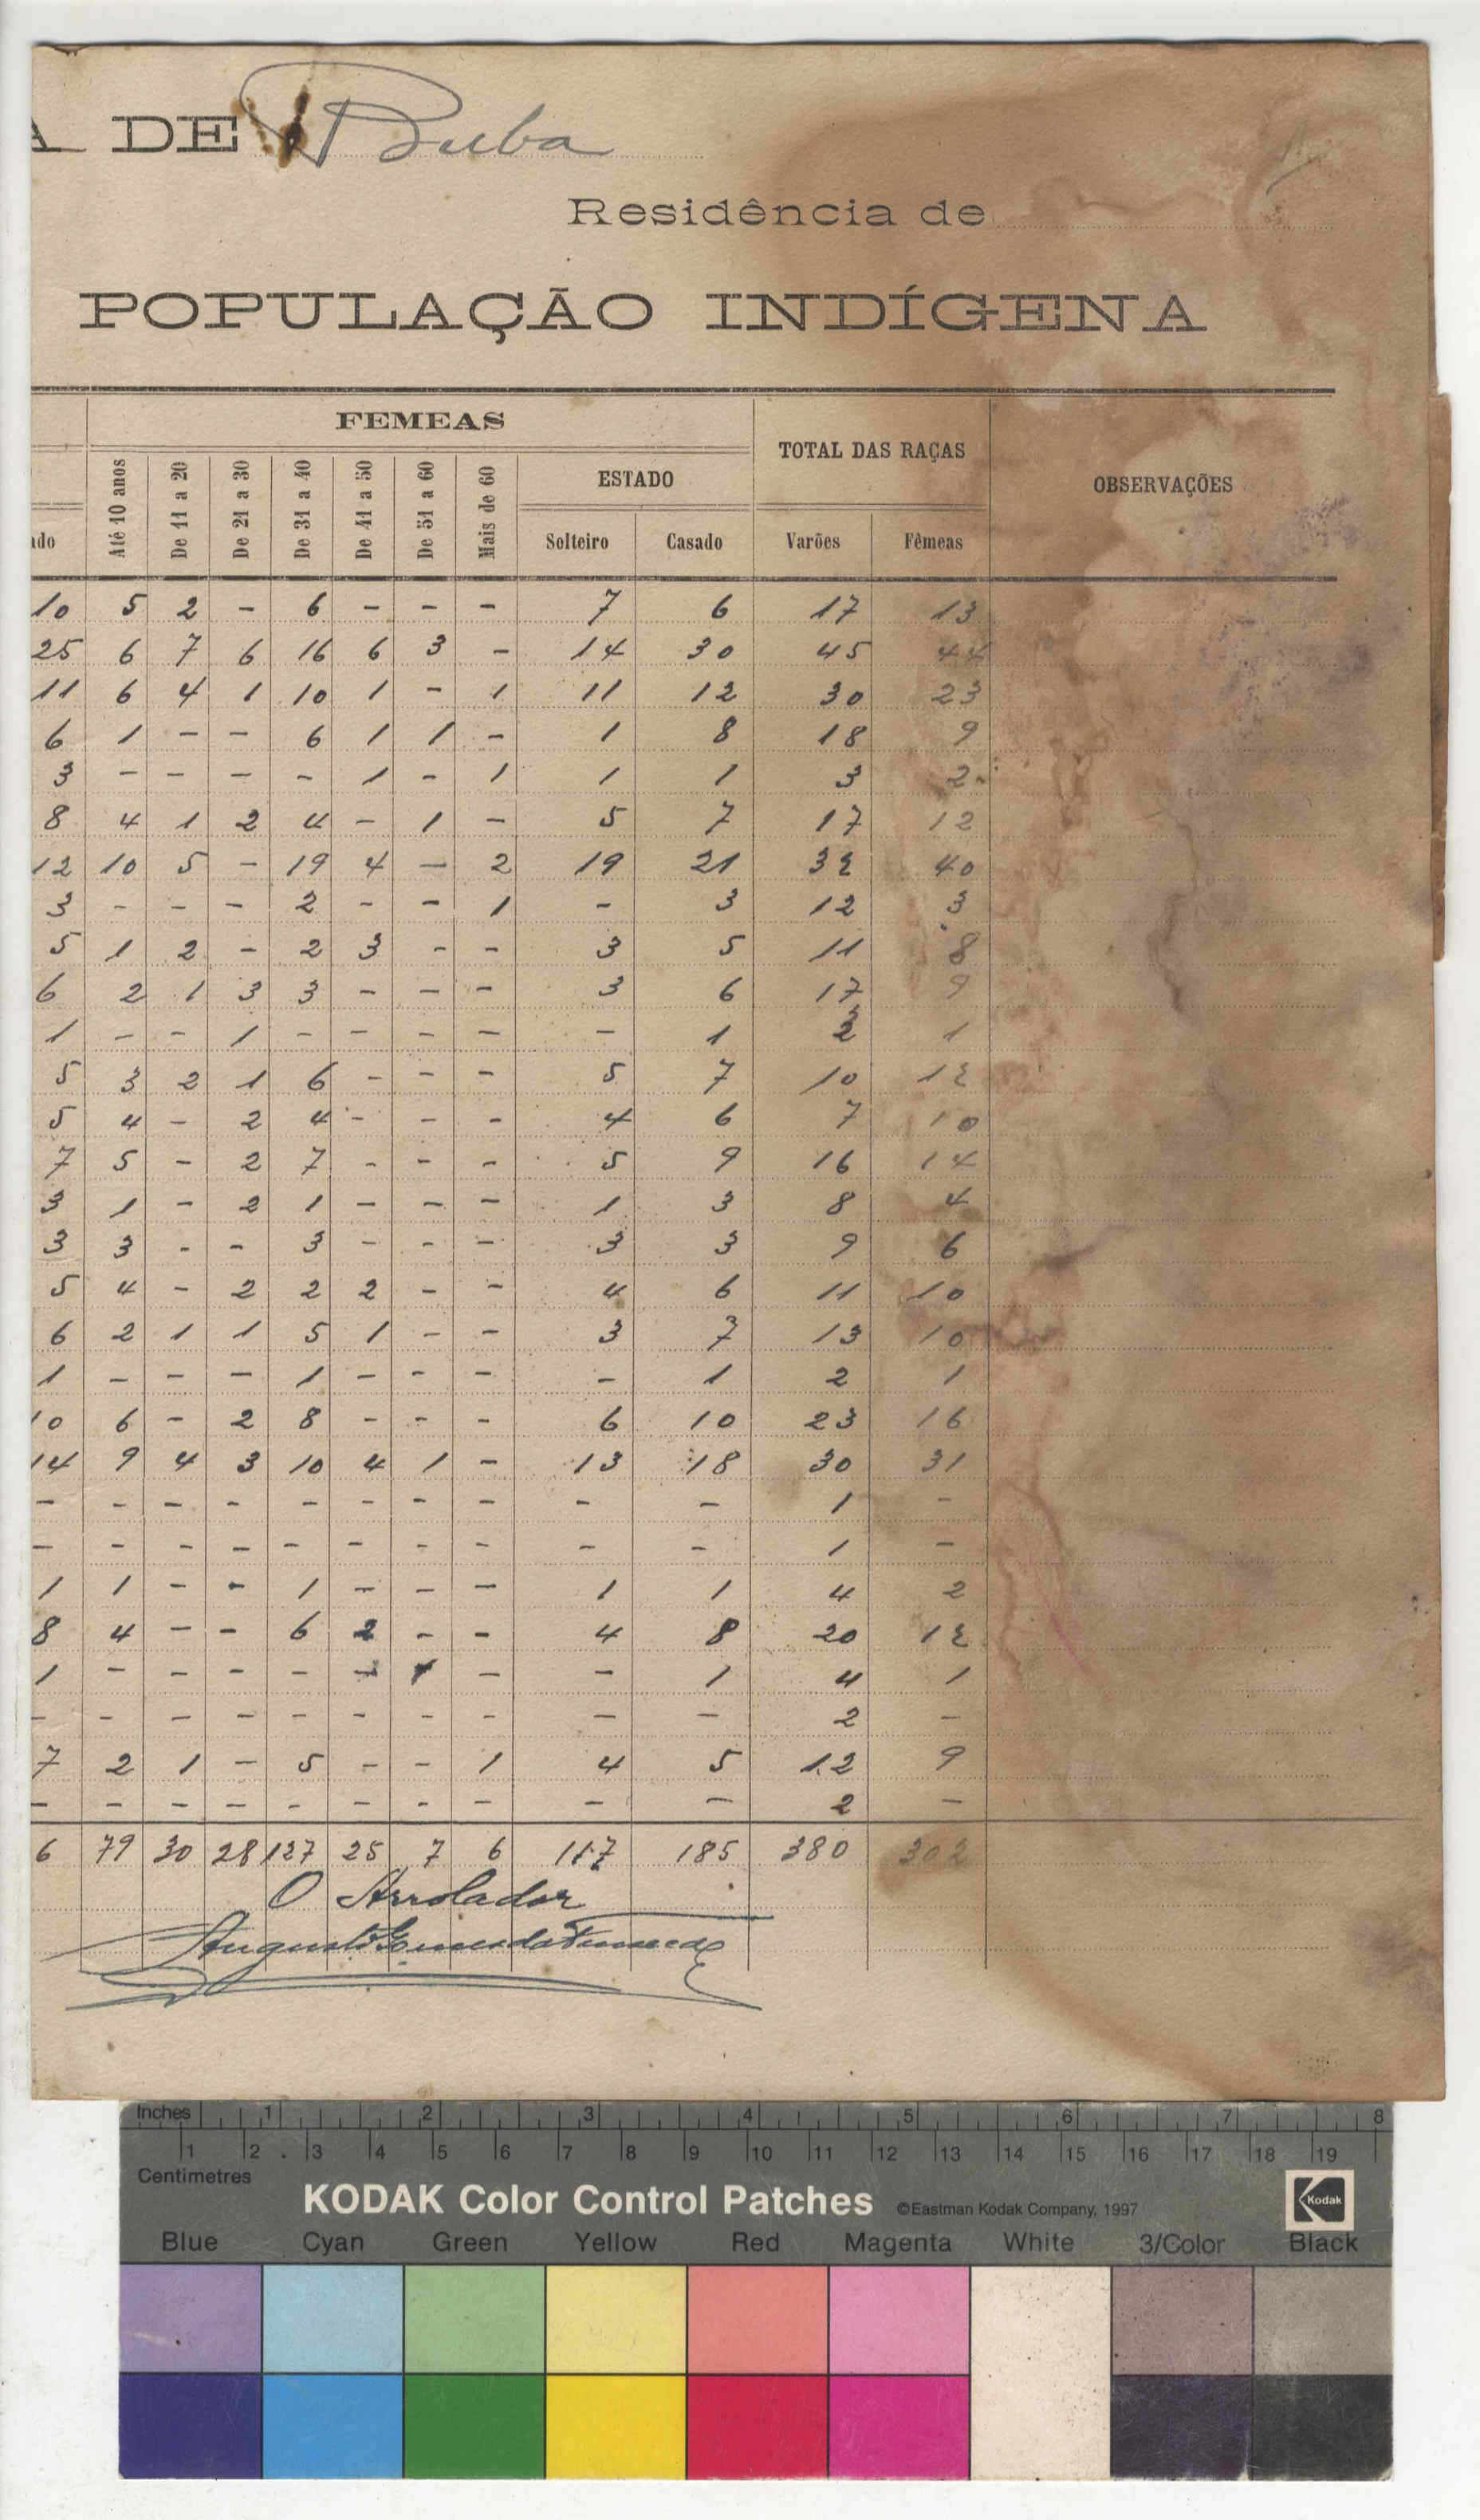 A DE Buba
Residência de
POPULAÇÃO INDÍGENA
FEMEAS
TOTAL DAS RAÇAS
OBSERVAÇÕES
ado Até 10 anos De 11 a 20 De 21 a 30 De 31 a 40 De 41 a 50 De 51 a 60 Mais de 60 ESTADO
Solteiro Casado Varões Fêmeas
10 5 2 - 6 - - - 7 6 17 13
25 6 7 6 16 6 3 - 14 30 45 44
11 6 4 1 10 1 - 1 11 12 30 23
6 1 - - 6 1 1 - 1 8 18 9
3 - - - - 1 - 1 1 1 3 2
8 4 1 2 4 - 1 - 5 7 17 12
12 10 5 - 19 4 - 2 19 21 32 40
3 - - - 2 - - 1 - 3 12 3
5 1 2 - 2 3 - - 3 5 11 8
6 2 1 3 3 - - - 3 6 17 9
1 - - 1 - - - - - 1 2 1
5 3 2 1 6 - - - 5 7 10 12
5 4 - 2 4 - - - 4 6 7 10
7 5 - 2 7 - - - 5 9 16 14
3 1 - 2 1 - - - 1 3 8 4
3 3 - - 3 - - - 3 3 9 6
5 4 - 2 2 2 - - 4 6 11 10
6 2 1 1 5 1 - - 3 7 13 10
1 - - - 1 - - - - 1 2 1
10 6 - 2 8 - - - 6 10 23 16
14 9 4 3 10 4 1 - 13 18 30 31
- - - - - - - - - - 1 -
- - - - - - - - - - 1 -
1 1 - - 1 - - - 1 1 4 2
8 4 - - 6 2 - - 4 8 20 12
1 - - - - - 1 - - 1 4 1
- - - - - - - - - - 2 -
7 2 1 - 5 - - 1 4 5 12 9
- - - - - - - - - - 2 -
6 79 30 28 127 25 7 6 117 185 380 302
O Arrolador
Augusto Gomes da Fonseca
Inches 1 2 3 4 5 6 7 8
1 2 3 4 5 6 7 8 9 10 11 12 13 14 15 16 17 18 19
Centimetres
KODAK Color Control Patches ©Eastman Kodak Company, 1997 Kodak
Blue Cyan Green Yellow Red Magenta White 3/Color Black